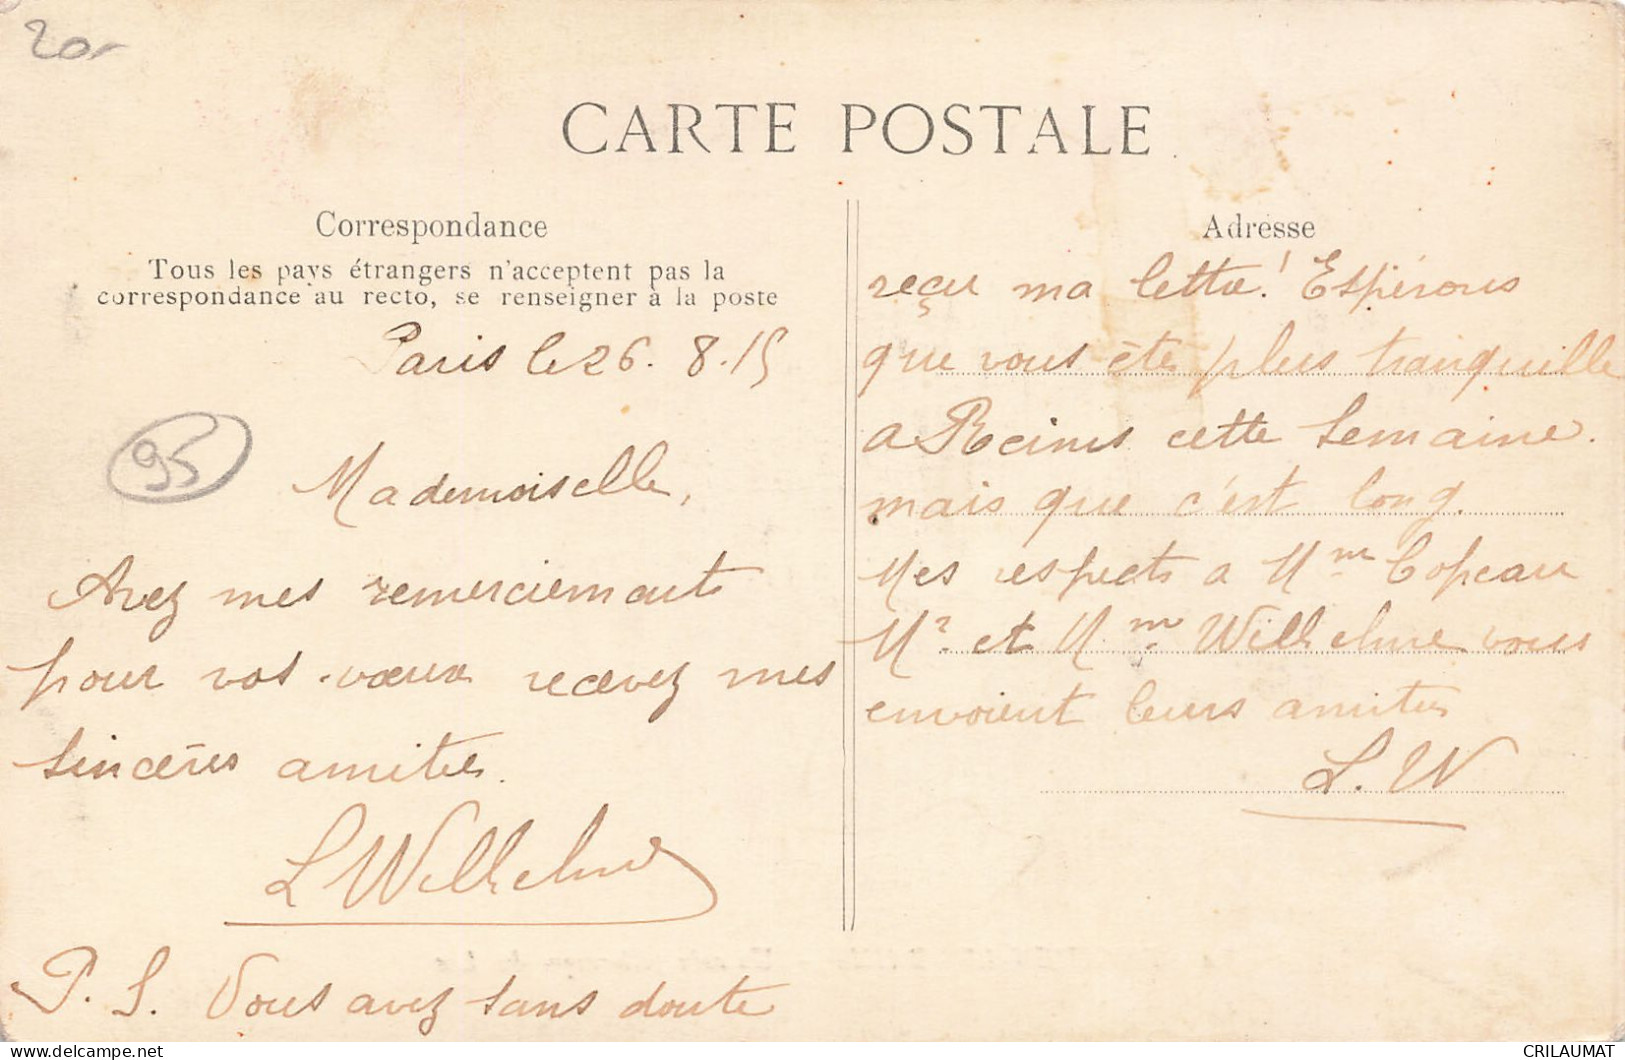 20
CARTE POSTALE
Correspondance
Tous les pays étrangers n'acceptent pas la
correspondance au recto, se renseigner à la poste
Paris le 26. 8. 15
95
Mademoiselle,
Avez mes remerciements
pour vos vœux recevez mes
sincères amitiés.
L Willhelme
P. S. Vous avez sans doute
Adresse
reçu ma lettre! Espérons
que vous ête plus tranquille
a Reims cette semaine.
mais que c'est long.
Mes respects a Mme Copeau
Mr et Mme Willhelme vous
envoient leurs amitiés
L. W
CRILAUMAT